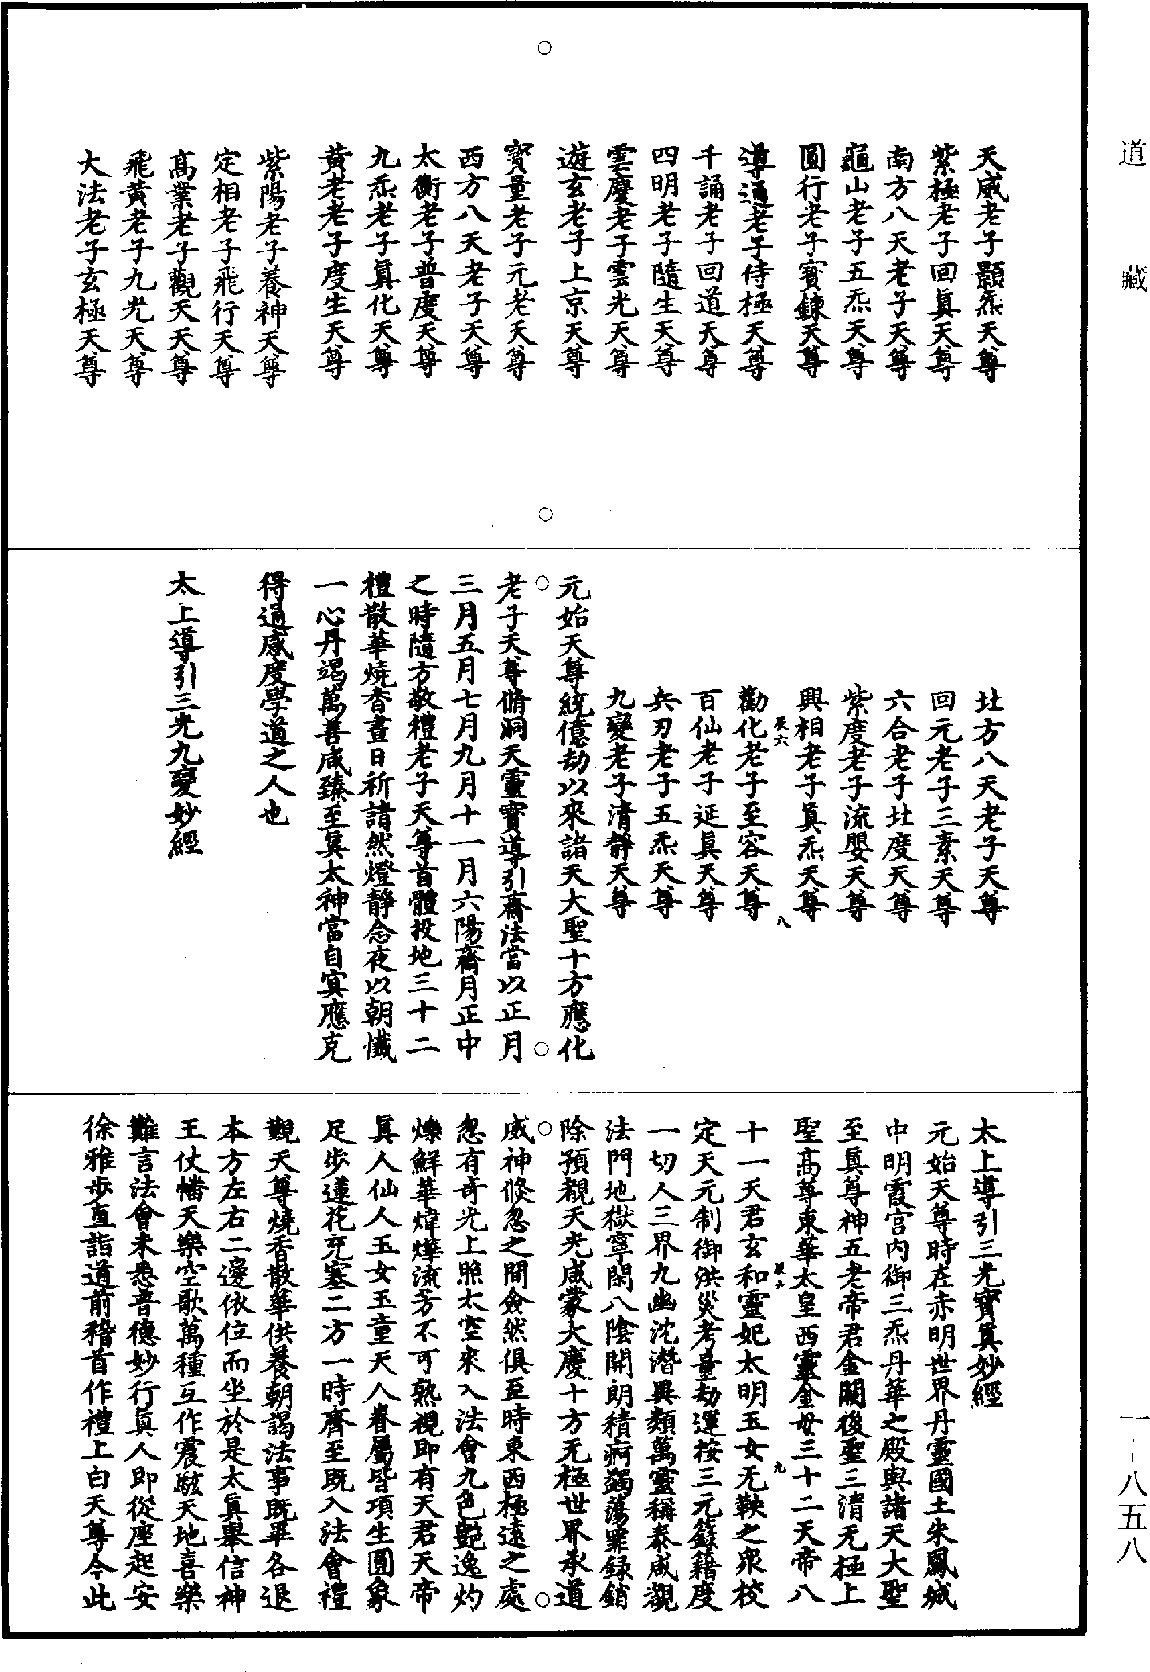 道藏
天威老子顥炁天尊
紫極老子回眞天尊
南方八天老子天尊
龜山老子五炁天尊
圓行老子寶鍊天尊
導通老子侍極天尊
千誦老子回道天尊
四明老子隨生天尊
雲慶老子雲光天尊
遊玄老子上京天尊
寶量老子元老天尊
西方八天老子天尊
太衡老子普度天尊
九炁老子眞化天尊
黃老老子度生天尊
紫陽老子養神天尊
定相老子飛行天尊
高業老子觀天天尊
飛黃老子九光天尊
大法老子玄極天尊
北方八天老子天尊
回元老子三素天尊
六合老子北度天尊
紫度老子流嬰天尊
興相老子眞炁天尊
辰六
八
勸化老子至容天尊
百仙老子延眞天尊
兵刃老子五炁天尊
九變老子清靜天尊
元始天尊統億劫以來諸天大聖十方應化
老子天尊脩洞天靈寶導引齋法當以正月
三月五月七月九月十一月六陽齋月正中
之時隨方敬禮老子天尊首體投地三十二
禮散華燒香晝日祈請然燈靜念夜以朝懺
一心丹竭萬善咸臻至眞太神當自寘應克
得通感度學道之人也
太上導引三光九變妙經
太上導引三光寶眞妙經
元始天尊時在赤明世界丹靈國土朱鳳城
中明霞宮內御三炁丹華之殿與諸天大聖
至眞尊神五老帝君金闕後聖三清无極上
聖高尊東華太皇西靈金母三十二天帝八
九
十一天君玄和靈妃太明玉女无鞅之衆校
定天元制御洪災考量劫運按三元籙籍度
一切人三界九幽沈潛異類萬靈稱泰咸觀
法門地獄寧閑八陰開朗積痾蠲蕩罪録銷
除預覩天光咸蒙大慶十方无極世界承道
威神倏忽之間僉然俱至時東西極遠之處
忽有奇光上照太空來入法會九色艷逸灼
爍鮮華煒燁流芳不可熟視即有天君天帝
眞人仙人玉女玉童天人眷屬皆項生圓象
足步蓮花充塞二方一時齊至既入法會禮
覲天尊燒香散華供養朝謁法事既畢各退
本方左右二邊依位而坐於是太眞舉信神
王仗幡天樂空歌萬種互作震駭天地喜樂
難言法會未悉普德妙行眞人即從座起安
徐雅步直詣道前稽首作禮上白天尊今此
一-八五八